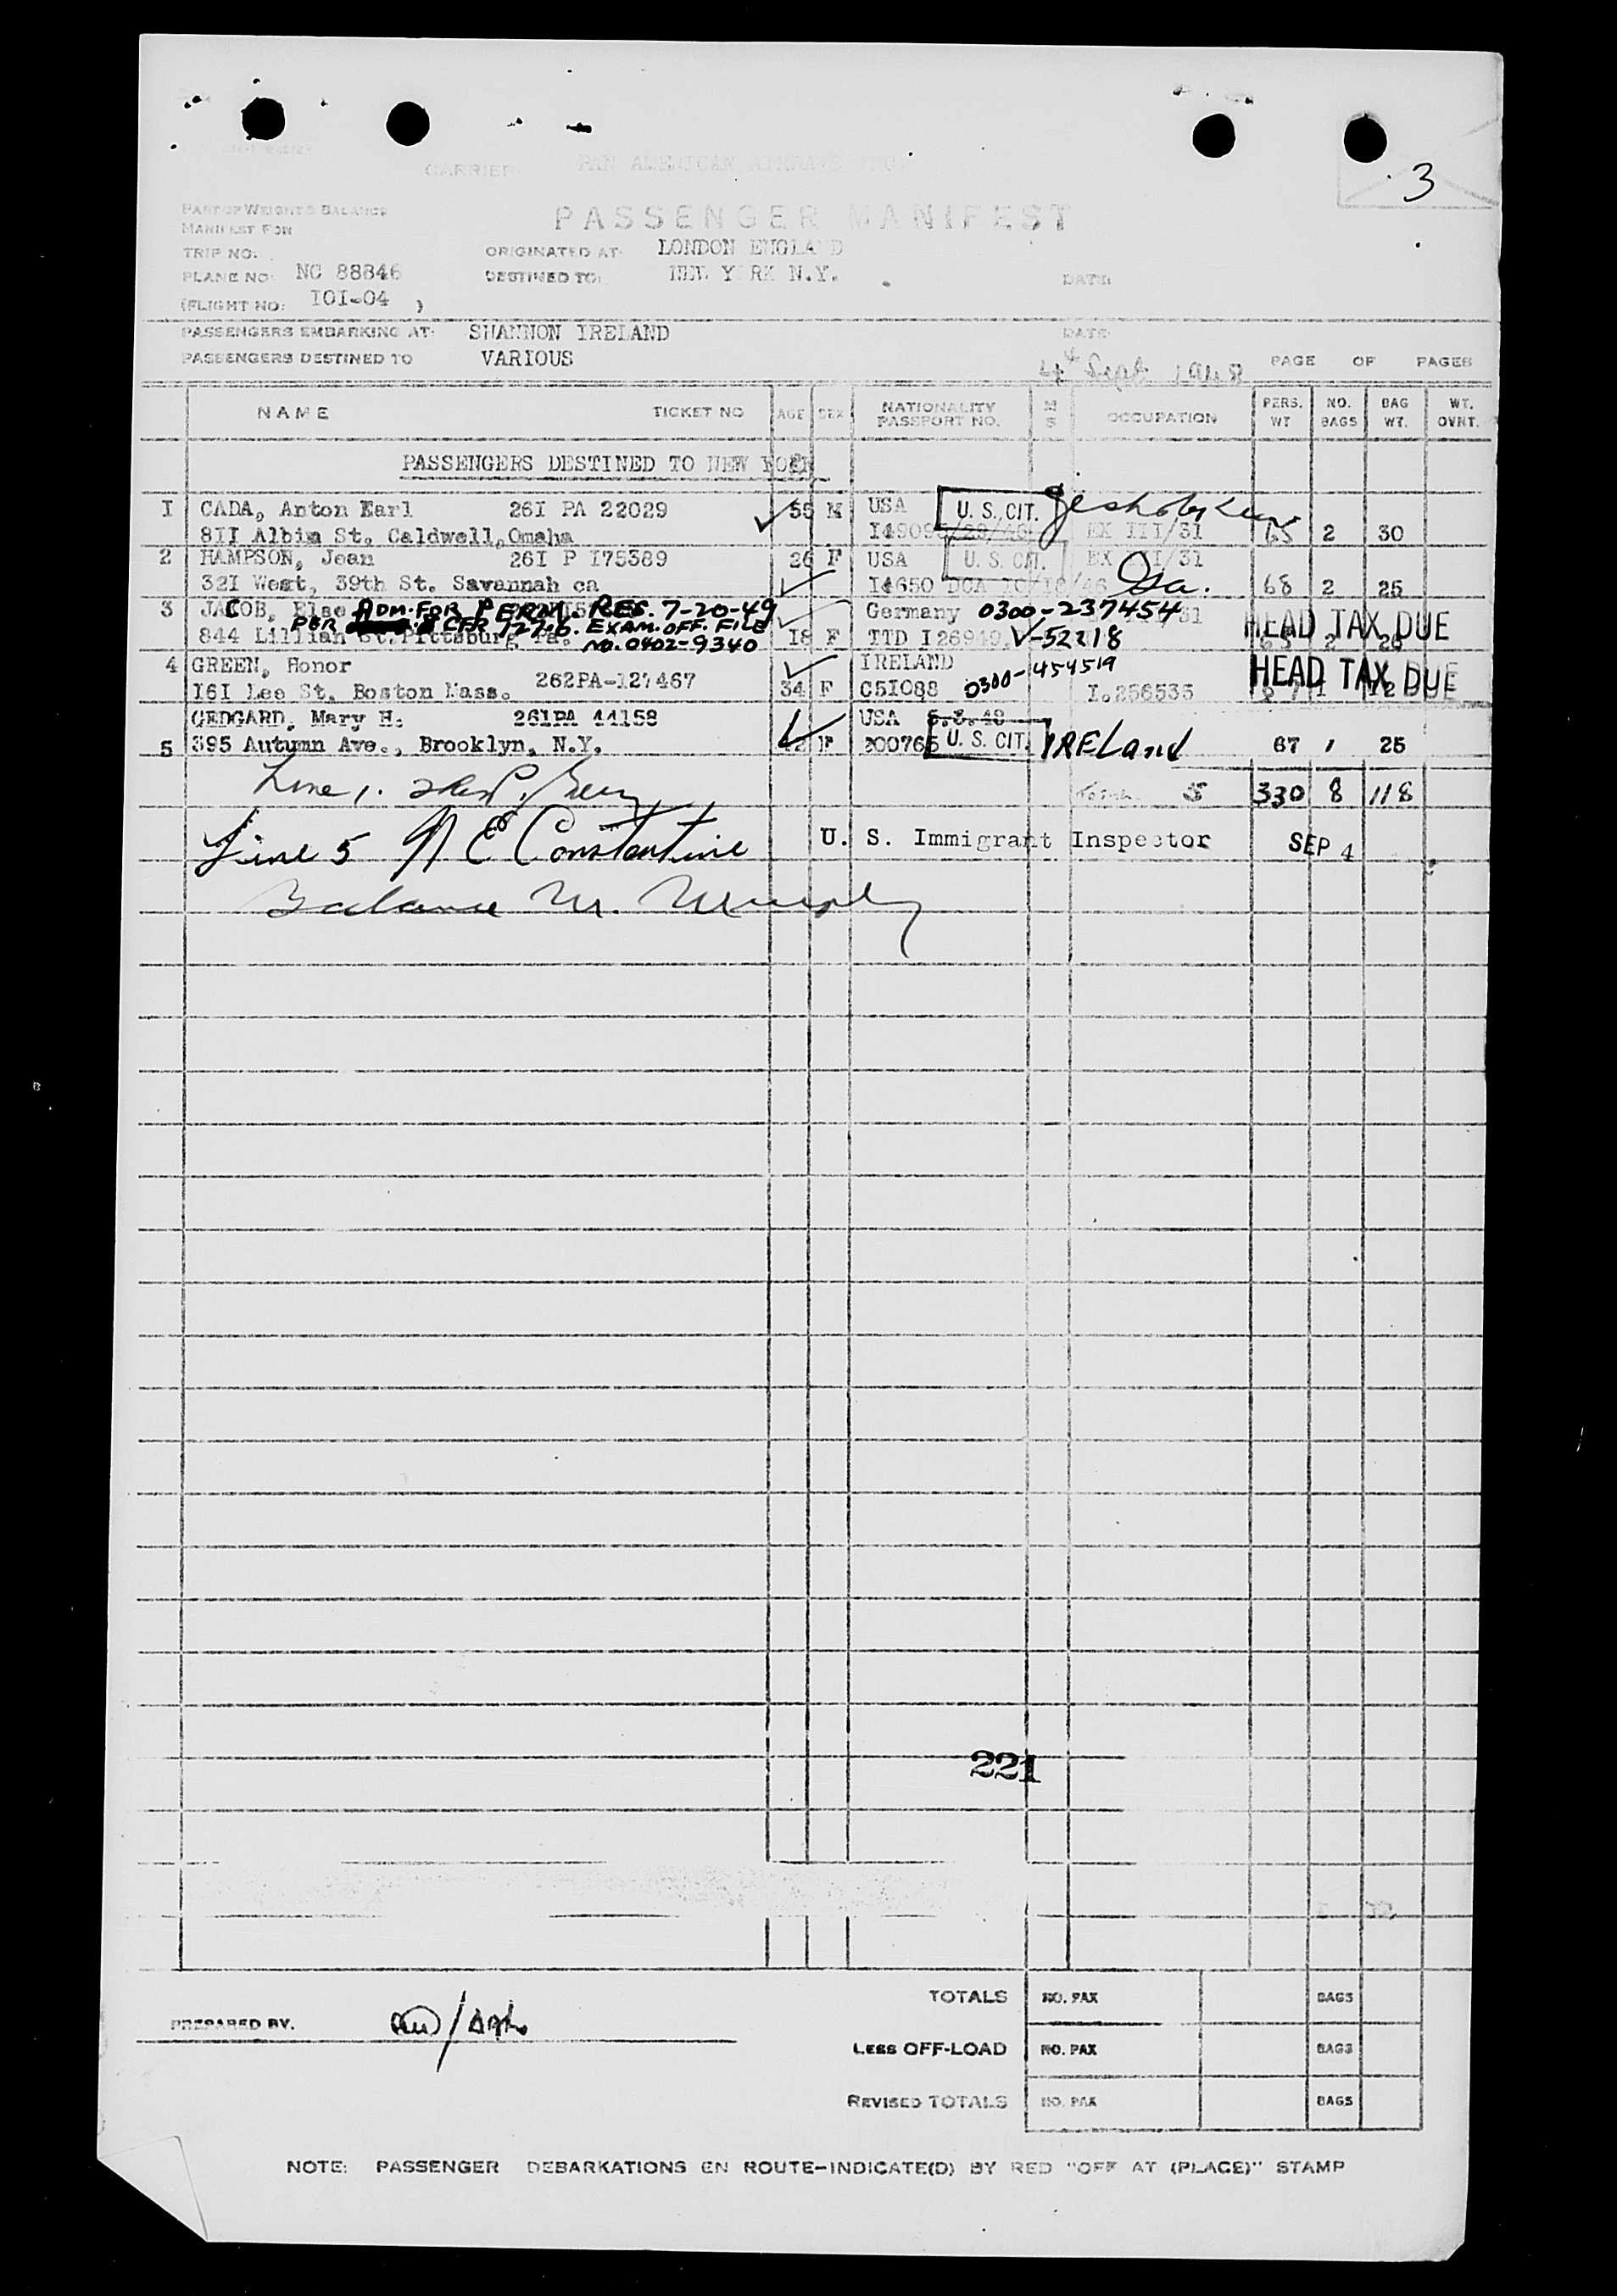 3
CARRIER PAN AMERICAN AIRWAYS
PASSENGER MANIFEST
PART OF WEIGHT & BALANCE
MANIFEST FOR
TRIP NO: ORIGINATED AT: LONDON ENGLAND
PLANE NO: NC 88846 DESTINED TO: NEW YORK N.Y. DATE:
(FLIGHT NO: IOI-04 )
PASSENGERS EMBARKING AT: SHANNON IRELAND DATE:
PASSENGERS DESTINED TO VARIOUS 4th Sept 1948 PAGE OF PAGES
NAME TICKET NO AGE SEX NATIONALITY PASSPORT NO. M S OCCUPATION PERS. WT NO. BAGS BAG WT. WT. OVNT.
PASSENGERS DESTINED TO NEW YORK
I CADA, Anton Earl 26I PA 22029 55 M USA U. S. CIT.
8II Albim St. Caldwell, Omaha EX III/31 65 2 30
2 HAMPSON, Jean 26I P I75389 26 F USA U. S. CIT. EX III/31
32I West, 39th St. Savannah ca I4650 DCA IO/I8/46 Ga. 68 2 25
3 JACOB, Else ADM. FOR PERM. RES. 7-20-49 Germany 0300-237454
PER 8 CFR 127.6. EXAM. OFF. FILE
844 Lillian St. Pittsburg Pa. NO. 0402-9340 I8 F TTD I26949 V-52218 HEAD TAX DUE
4 GREEN, Honor IRELAND
I6I Lee St. Boston Mass. 262PA-127467 34 F C5I088 0300-454519 I.256535 HEAD TAX DUE
GEDGARD, Mary H. 26IPA 44158 USA
5 395 Autumn Ave., Brooklyn, N.Y. F 200765 U. S. CIT. IRELand 67 1 25
Line 1.
Total 5 330 8 118
Line 5 N E Constantine U. S. Immigrant Inspector SEP 4
Balance M. Murphy
221
TOTALS NO. PAX BAGS
PREPARED BY.
LESS OFF-LOAD NO. PAX BAGS
REVISED TOTALS NO. PAX BAGS
NOTE: PASSENGER DEBARKATIONS EN ROUTE-INDICATE(D) BY RED "OFF AT (PLACE)" STAMP